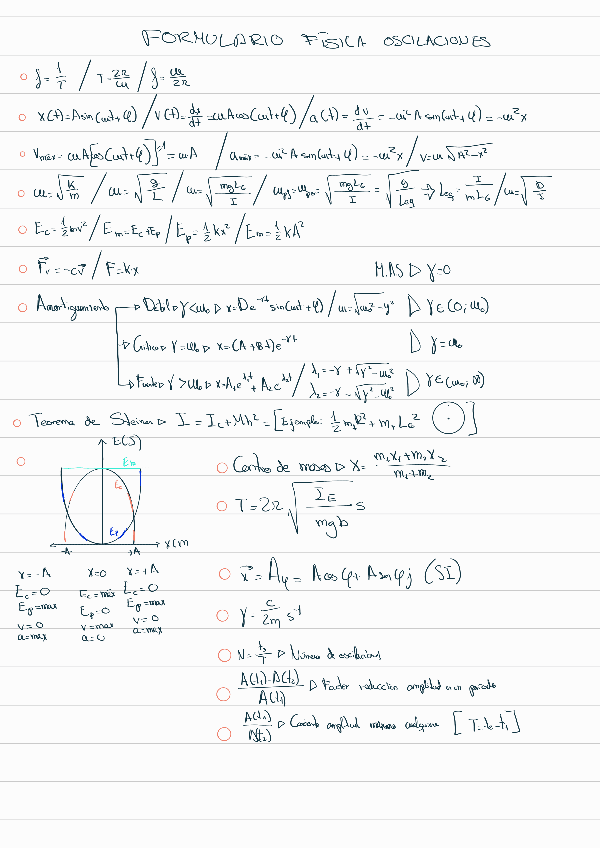 FORMULARIO FÍSICA OSCILACIONES
f = 1/T / T = 2π/ω / f = ω/2π
x(t) = A sin(ωt+φ) / v(t) = dx/dt = ωA cos(ωt+φ) / a(t) = dv/dt = -ω² A sin(ωt+φ) = -ω²x
vmáx = ωA[cos(ωt+φ)]^1 = ωA / amáx = -ω² A sin(ωt+φ) = -ω²x / v = ω √(A²-x²)
ω = √(k/m) / ω = √(g/L) / ω = √(mgLc/I) / = √(mgLc/I) = √(g/Leq) → Leq = I/mLG / ω = √(D/I)
Ec = 1/2 mv² / Em = Ec+Ep / Ep = 1/2 kx² / Em = 1/2 kA²
Fv = -cv / F = kx M.A.S ▷ γ=0
Amortiguamiento ▷ Débil ▷ γ<ω₀ ▷ x = De^-γt sin(ωt+φ) / ω = √(ω₀²-γ²) ▷ γ∈(0,ω₀)
▷ Crítico ▷ γ=ω₀ ▷ x = (A+Bt)e^-γt ▷ γ=ω₀
▷ Fuerte ▷ γ>ω₀ ▷ x = A₁e^λ₁t + A₂e^λ₂t / λ₁ = -γ + √(γ²-ω₀²) λ₂ = -γ - √(γ²-ω₀²) ▷ γ∈(ω₀,∞)
Teorema de Steiner ▷ I = Ic + Mh² = [Ejemplo: 1/2 m₁R² + m₁Lc²]
E(J)
Em
Ec
Ep
-A A x(m
x=-A x=0 x=+A
Ec=0 Ec=máx Ec=0
Ep=max Ep=0 Ep=max
v=0 v=max v=0
a=max a=0 a=max
Centro de masas ▷ x = (m₁x₁+m₂x₂)/(m₁+m₂)
T = 2π √(IE/mgb) s
x = Aφ = A cosφ i + A sinφ j (SI)
γ = c/2m s^-1
N = t/T ▷ Número de oscilaciones
(A(t₁)-A(t₂))/A(t₁) ▷ Factor reducción amplitud en un periodo
A(t₁)/A(t₂) ▷ Cociente amplitud máximos [T = t₂-t₁]